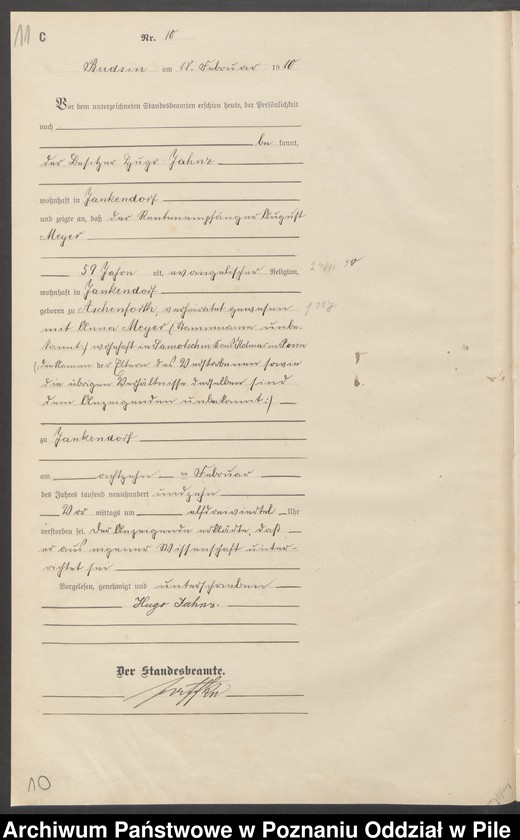 11 C Nr. 10
Budsin am 18. Februar 1910
Vor dem unterzeichneten Standesbeamten erschien heute, der Persönlichkeit
nach
be kannt,
der Besitzer Hugo Jahnz
wohnhaft in Jankendorf
und zeigte an, daß der Rentenempfänger August
Meyer
59 Jahre alt, evangelischer Religion,
wohnhaft in Jankendorf
geboren zu Aschenforth, verheiratet gewesen
mit Anna Meyer (Stammname unbe-
kannt) wohnhaft in Samotschin Kreis Kolmar in Posen
(:die Namen der Eltern des Verstorbenen sowie
die übrigen Verhältnisse derselben sind
dem Anzeigenden unbekannt:)
zu Jankendorf
am achtzehn ten Februar
des Jahres tausend neunhundert und zehn
Vor mittags um elfdreiviertel Uhr
verstorben sei. Der Anzeigende erklärte, daß
er aus eigener Wissenschaft unter-
richtet sei
Vorgelesen, genehmigt und unterschrieben
Hugo Jahnz.
Der Standesbeamte.
10
Archiwum Państwowe w Poznaniu Oddział w Pile